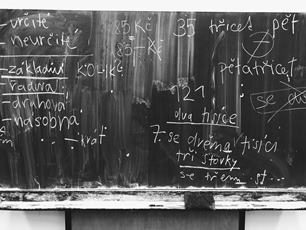 určité
neurčité
základní KOLIK?
řadová
druhová
násobná
krát
85 Kč
85 - Kč
35 třicet pět
pětatřicet
se
121
dva tisíce
7. se dvěma tisíci
tři stovky
se třem st